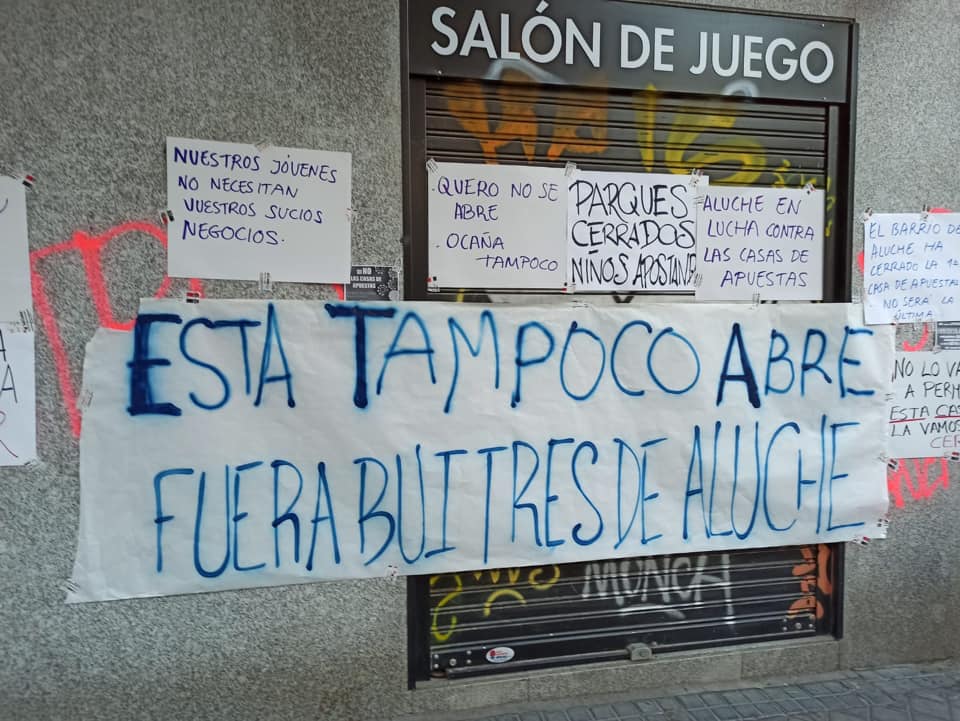 SALÓN DE JUEGO
NUESTROS JÓVENES
NO NECESITAN
VUESTROS SUCIOS
NEGOCIOS.
. QUERO NO SE
ABRE
. OCAÑA
TAMPOCO
PARQUES
CERRADOS
NIÑOS APOSTANDO
ALUCHE EN
LUCHA CONTRA
LAS CASAS DE
APUESTAS
EL BARRIO DE
ALUCHE HA
CERRADO LA 1ª
CASA DE APUESTAS
NO SERÁ LA
ÚLTIMA
NO
LAS CASAS DE
APUESTAS
ESTA TAMPOCO ABRE
FUERA BUITRES DE ALUCHE
¡NO LO VA
A PERM
ESTA CAS
LA VAMOS
CER
A
A
R
MUNCH